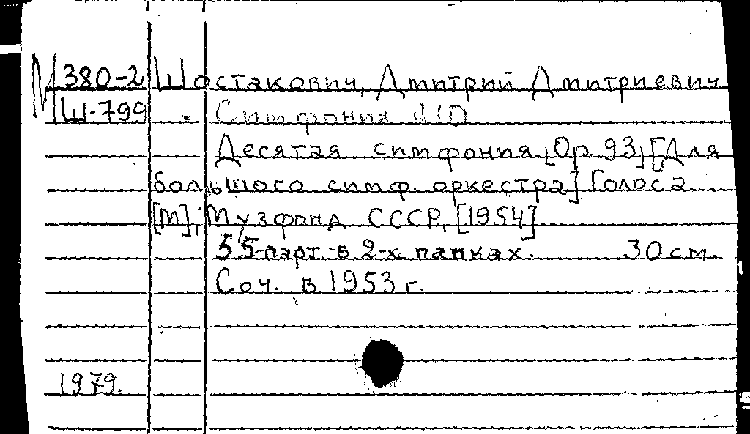 М 380-2 Шостакович, Дмитрий Дмитриевич
Ш-799 Симфония №10
Десятая симфония [Ор 93] [Для
большого симф. оркестра] Голоса
[М], Музфонд СССР, [1954]
55 парт. в 2-х папках. 30 см.
Соч. в 1953 г.
1979.